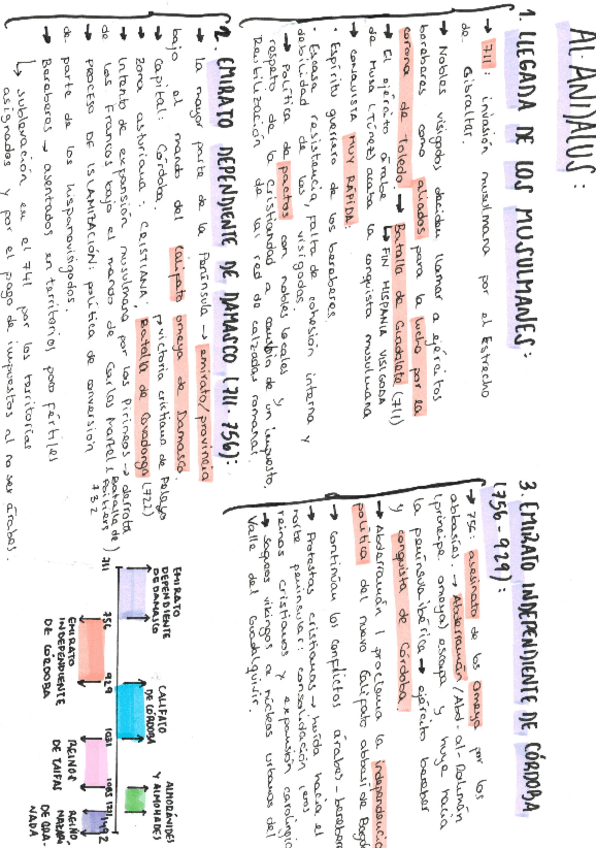 AL-ANDALUS:
1. LLEGADA DE LOS MUSULMANES:
→ 711: invasión musulmana por el Estrecho
de Gibraltar.
→ Nobles visigodos deciden llamar a ejércitos
bereberes como aliados para la lucha por la
corona de Toledo → Batalla de Guadalete (711)
↳ FIN HISPANIA VISIGODA
→ El ejército árabe
de Musa (Túnez) acaba la conquista musulmana
→ CONQUISTA MUY RÁPIDA:
· Espíritu guerrero de los bereberes.
· Escasa resistencia, falta de cohesión interna y
debilidad de los visigodos.
→ Política de pactos con nobles locales y
respeto de la cristiandad a cambio de un impuesto.
Reutilización de la red de calzadas romanas.
2. EMIRATO DEPENDIENTE DE DAMASCO (711-756):
→ la mayor parte de la Península → emirato/provincia
bajo el mando del califato omeya de Damasco.
→ Capital: Córdoba
→ Zona asturiana: CRISTIANA, Batalla de Covadonga (722)
victoria cristiana de Pelayo
→ Intento de expansión musulmana por los Pirineos → derrota
de los Francos bajo el mando de Carlos Martel (Batalla de Poitiers 732)
→ PROCESO DE ISLAMIZACIÓN: política de conversión
de parte de los hispanovisigodos.
→ Bereberes → asentados en territorios poco fértiles
↳ sublevación en el 741 por los territorios
asignados y por el pago de impuestos al no ser árabes.
3. EMIRATO INDEPENDIENTE DE CÓRDOBA
(756-929):
→ 756: asesinato de los Omeya por los
abbasíes. → Abderramán / Abd-al-Rahmán
(príncipe omeya) escapa y huye hacia
la península ibérica → ejército bereber
y conquista de Córdoba.
→ Abderramán I proclama la independencia
política del nuevo Califato abbasí de Bagdad
→ Continúan los conflictos árabes-bereberes
→ Protestas cristianas → huida hacia el
norte peninsular: consolidación
reinos cristianos y expansión carolingia
→ Saqueos vikingos a núcleos urbanos del
Valle del Guadalquivir.
EMIRATO
DEPENDIENTE
DE DAMASCO
CALIFATO
DE CÓRDOBA
ALMORÁVIDES
Y ALMOHADES
711
756
929
1031
1085
1492
EMIRATO
INDEPENDIENTE
DE CÓRDOBA
REINOS
DE TAIFAS
REINO
NAZARÍ
DE GRA-
NADA